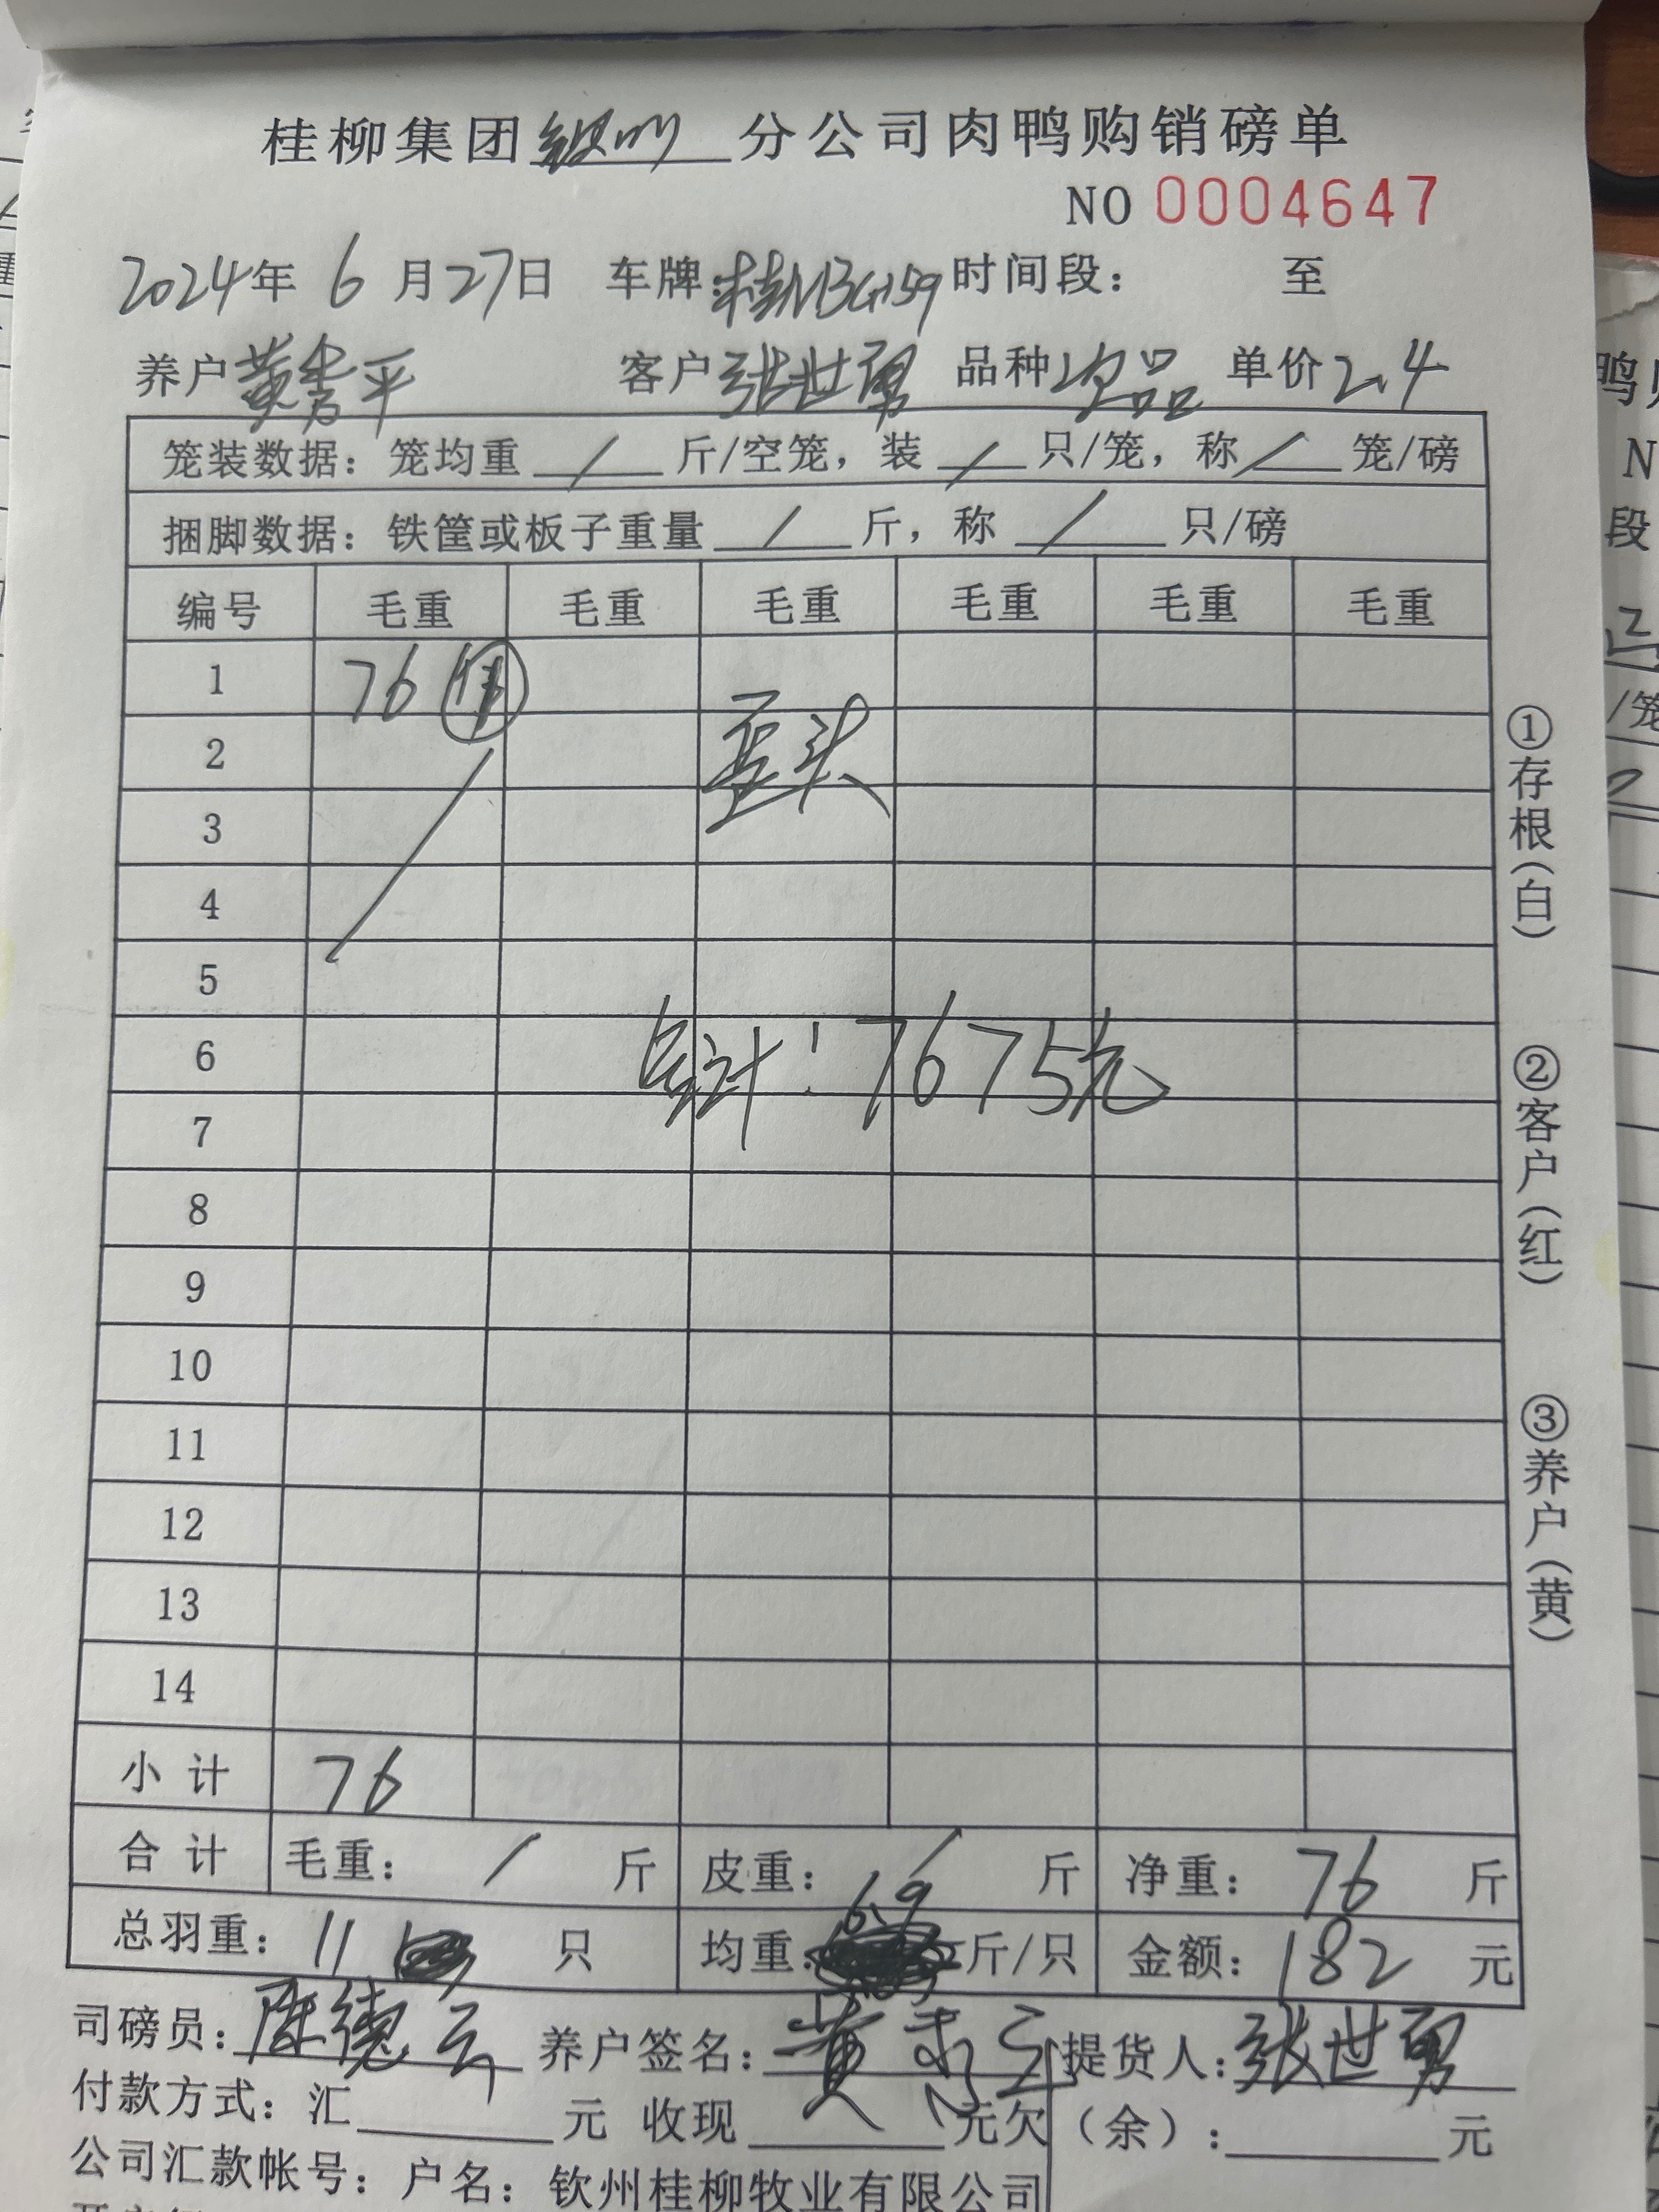 桂柳集团 分公司肉鸭购销磅单
NO 0004647
2024年 6月27日 车牌: 时间段: 至
养户黄秀平 客户张世勇 品种次品 单价2.4
笼装数据: 笼均重 / 斤/空笼, 装 / 只/笼, 称 / 笼/磅
捆脚数据: 铁筐或板子重量 / 斤, 称 / 只/磅
编号 毛重 毛重 毛重 毛重 毛重 毛重
1 76
2 歪头
3
4
5
6 总计: 7675元
7
8
9
10
11
12
13
14
小计 76
合计 毛重: / 斤 皮重: / 斤 净重: 76 斤
总羽重: 11 只 均重: 6.9 斤/只 金额: 182 元
司磅员: 陈德云 养户签名: 黄 提货人: 张世勇
付款方式: 汇 元 收现 元欠(余): 元
公司汇款帐号: 户名: 钦州桂柳牧业有限公司
①存根(白)
②客户(红)
③养户(黄)